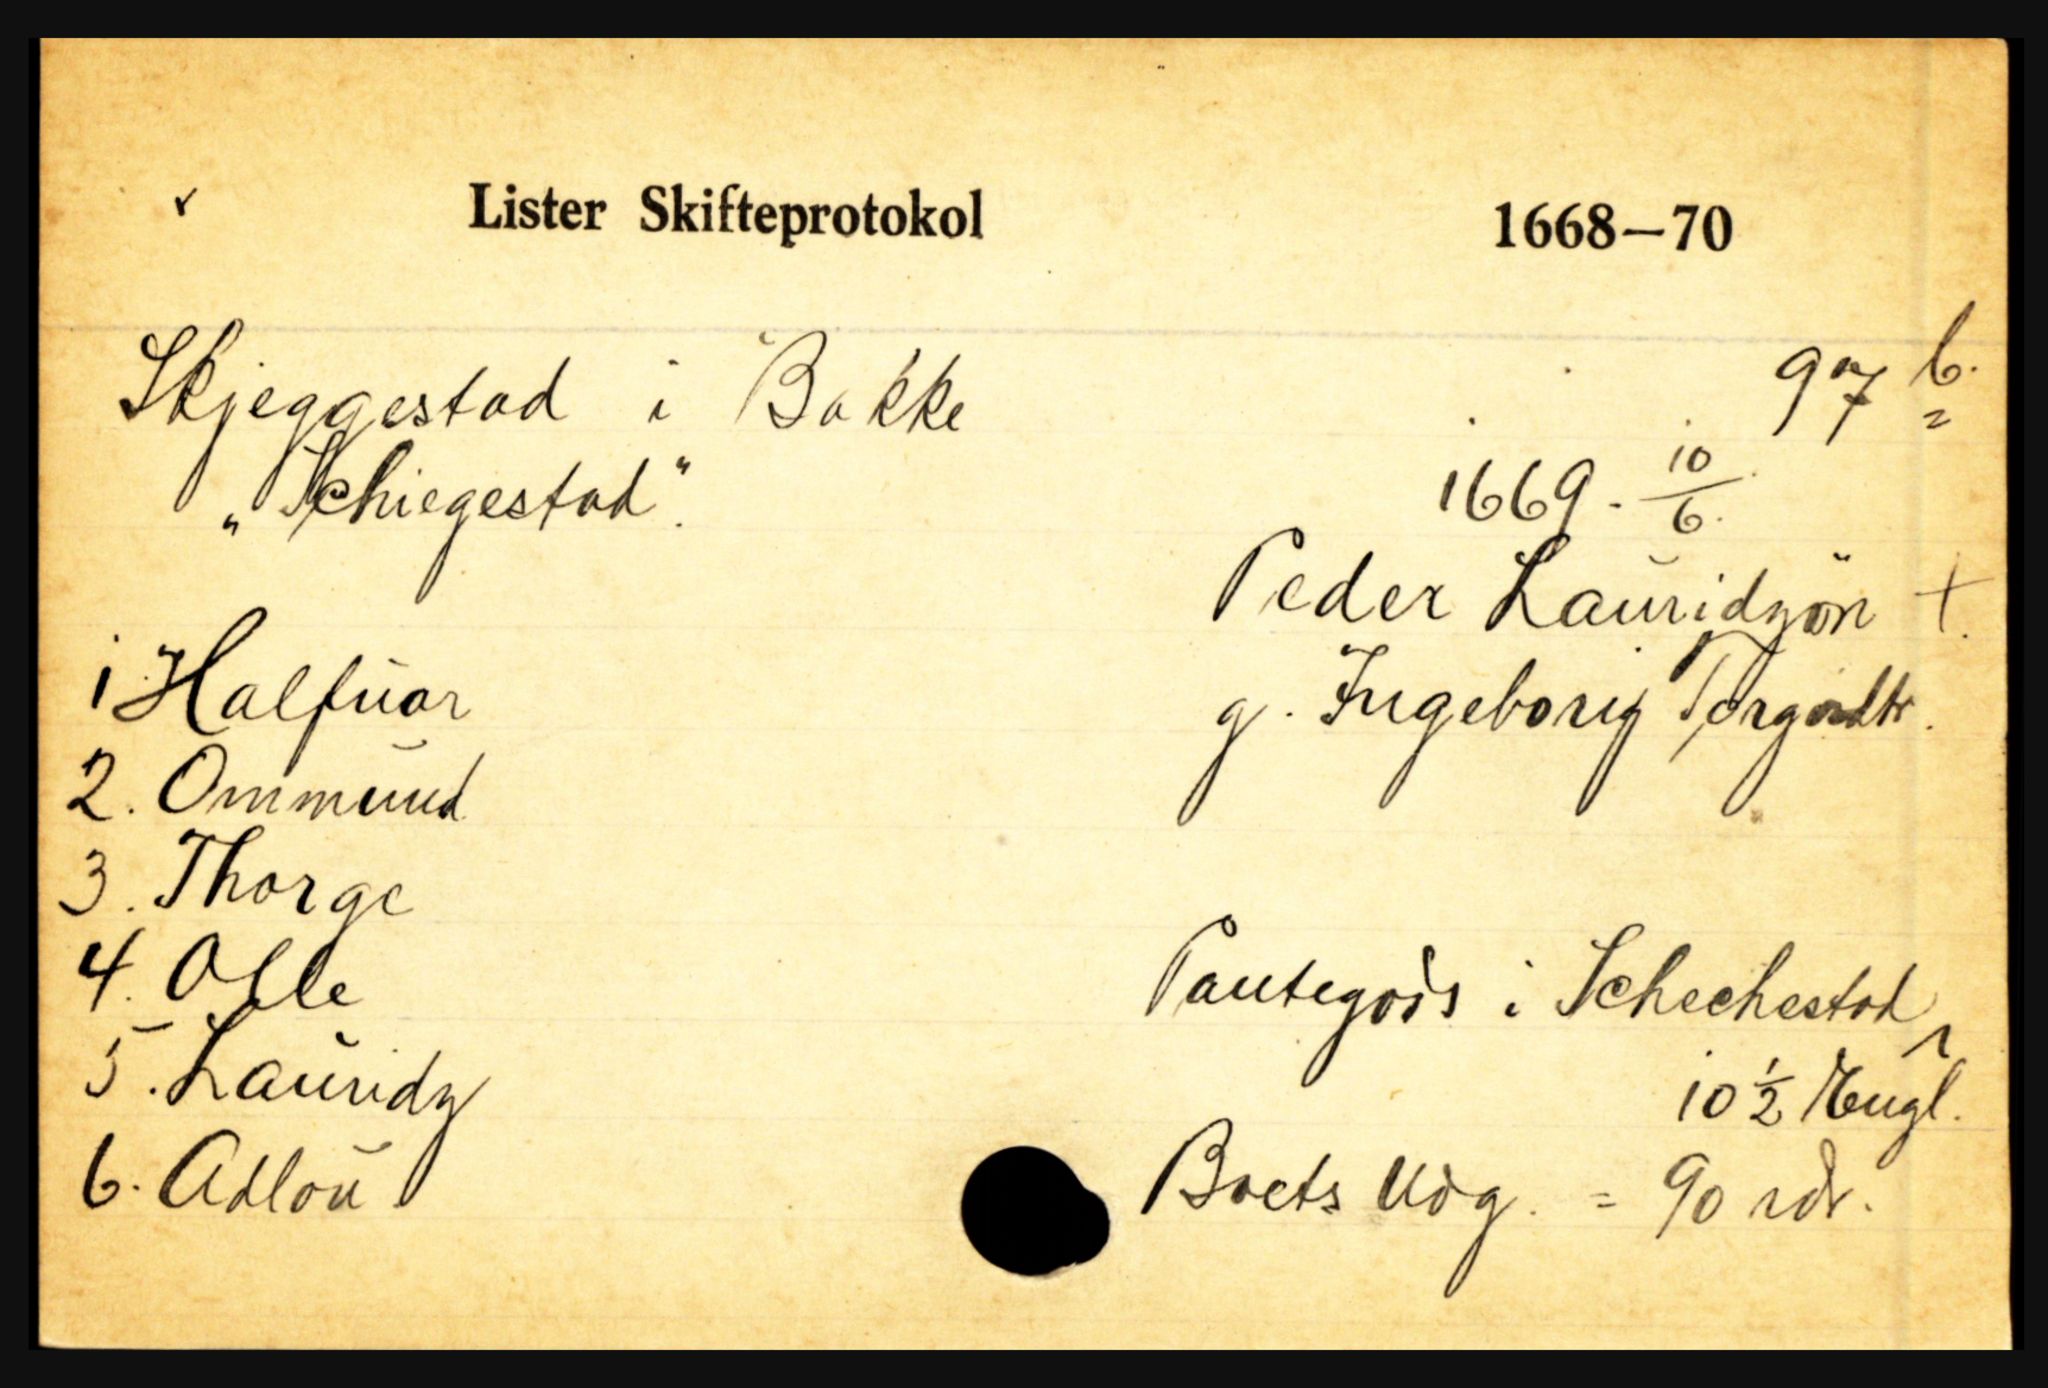 Lister Skifteprotokol 1668—70
Skjeggestad i Bakke 97 b.
"Schiegestad".
1669. 10/6.
Peder Lauridzön +
g. Ingeborig Torgördtr.
1. Halfuor
2. Ommund
3. Thorge
4. Olle
5. Lauridz
6. Adlou
Pantegods i Schechestad
10 ½ Engl.
Boets Udg. = 90 rdr.